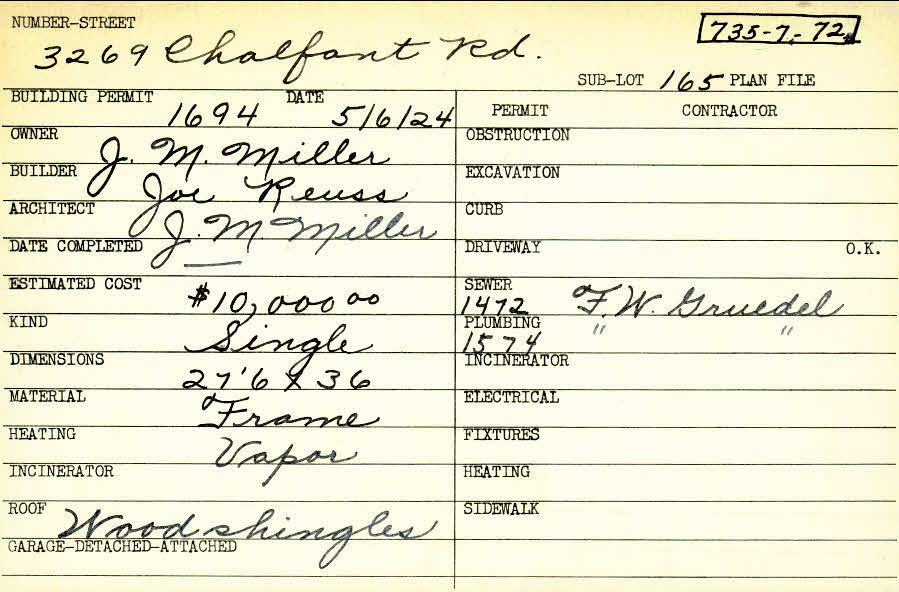 NUMBER-STREET
735-7-72
3269 Chalfant Rd.
SUB-LOT 165 PLAN FILE
BUILDING PERMIT DATE
1694 5/6/24
PERMIT CONTRACTOR
OWNER J. M. Miller
OBSTRUCTION
BUILDER Joe Reuss
EXCAVATION
ARCHITECT J. M. Miller
CURB
DATE COMPLETED —
DRIVEWAY O.K.
ESTIMATED COST $10,000 00
SEWER
1472 F. W. Gruedel
KIND Single
PLUMBING " "
1574
DIMENSIONS 27'6 x 36
INCINERATOR
MATERIAL Frame
ELECTRICAL
HEATING Vapor
FIXTURES
INCINERATOR
HEATING
ROOF Wood shingles
SIDEWALK
GARAGE-DETACHED-ATTACHED